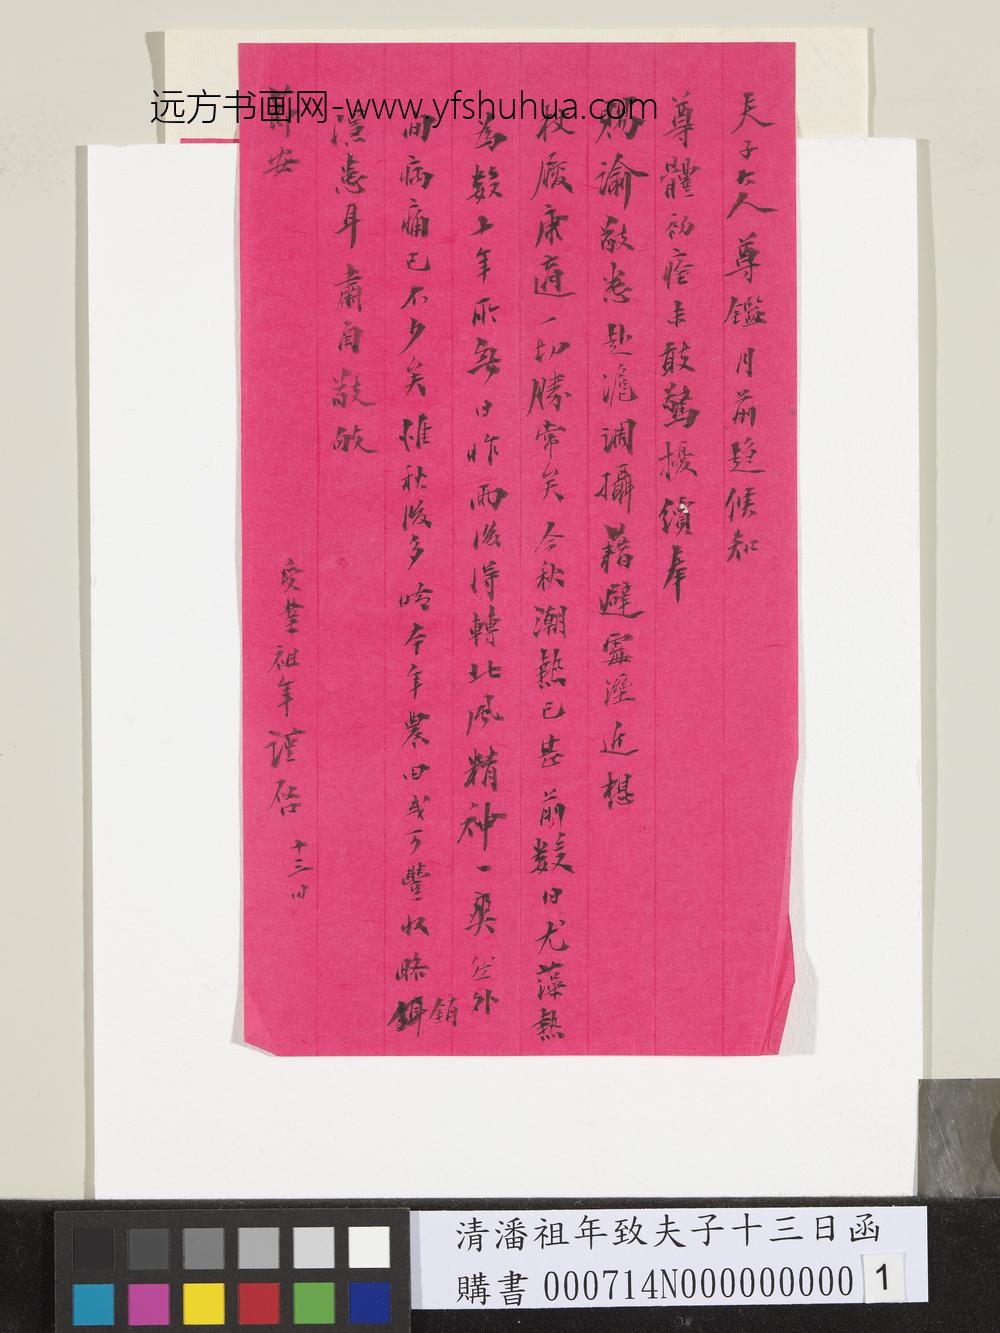 远方书画网-www.yfshuhua.com
夫子大人尊鑑月前趨候知
尊體初痊未敢驚擾續奉
賜諭敬悉赴滬調攝藉避霉溼近想
杖履康適一切勝常矣今秋潮熱已甚前数日尤藻熱
為數十年所無日昨雨後得轉北風精神一爽然外
間病痛已不少矣惟秋後多晴本年農田或可豐收略
銷
隱患耳肅甫敬敂
荷安
受業祖年謹啓
十三日
清潘祖年致夫子十三日函
購書 000714N000000000 1